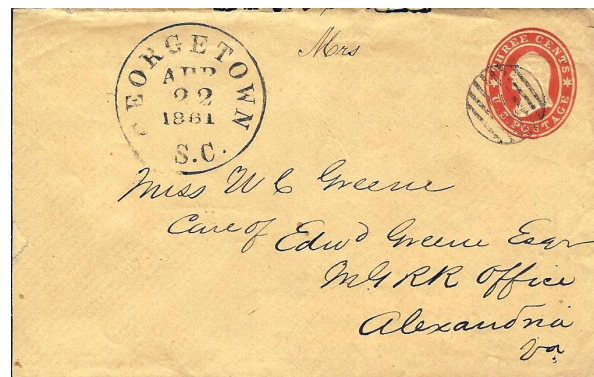 GEORGETOWN
APR
22
1861
S.C.
Mrs
THREE CENTS
U.S. POSTAGE
Miss W C Greene
Care of Edwd Greene Esqr
MGRR Office
Alexandria
Va